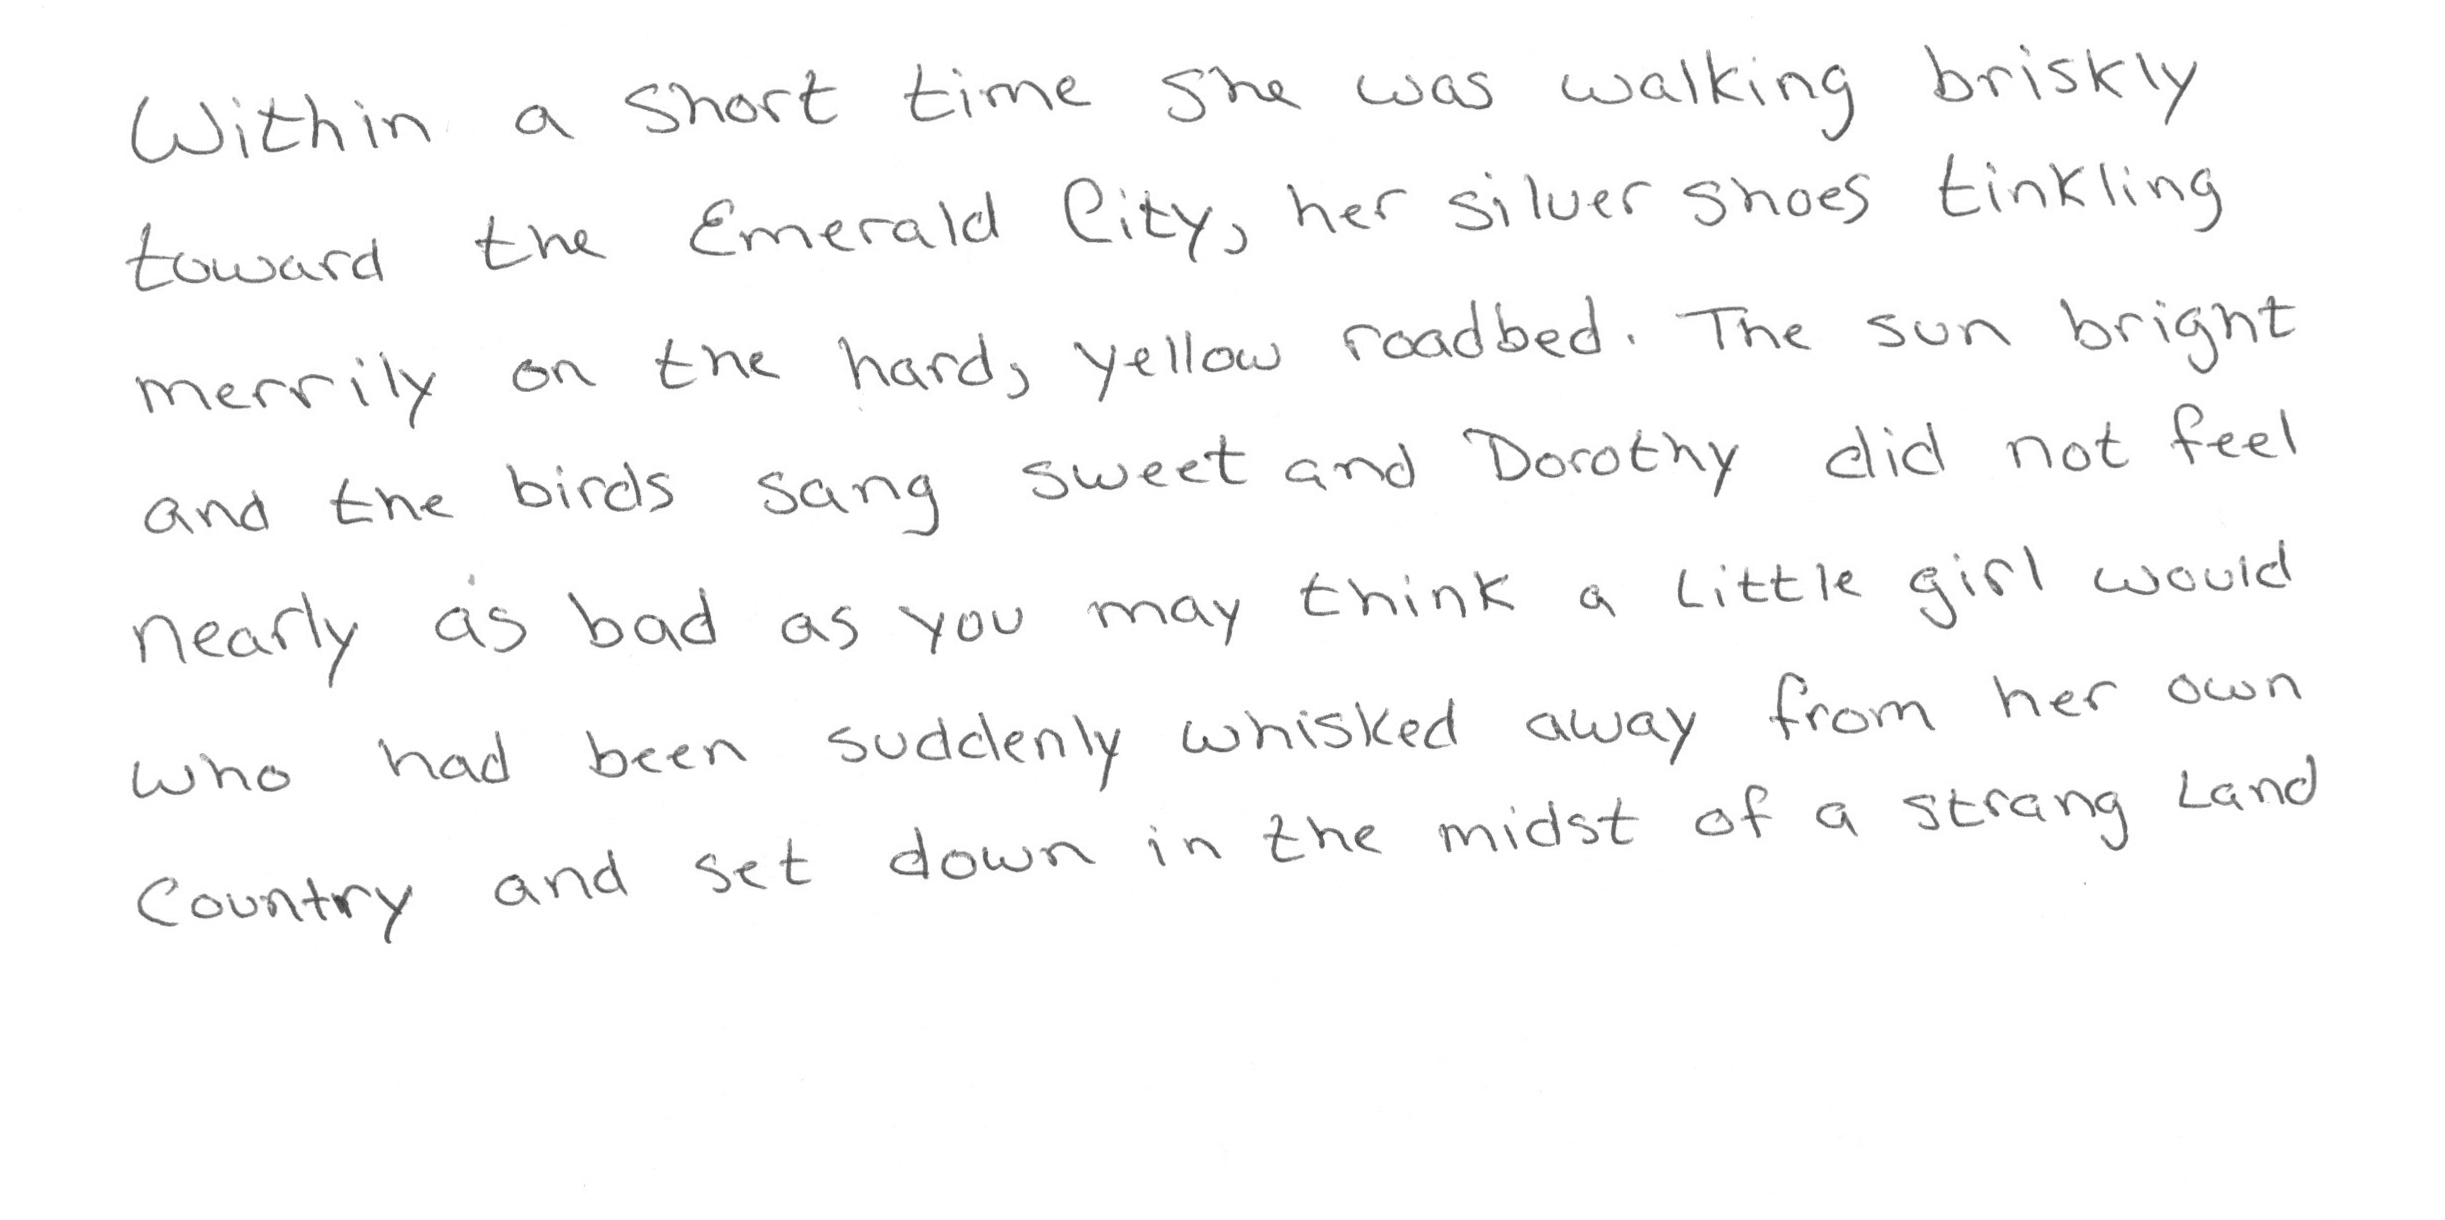 Within a short time she was walking briskly
toward the Emerald City, her silver shoes tinkling
merrily on the hard, yellow roadbed. The sun bright
and the birds sang sweet and Dorothy did not feel
nearly as bad as you may think a little girl would
who had been suddenly whisked away from her own
Country and set down in the midst of a strang Land